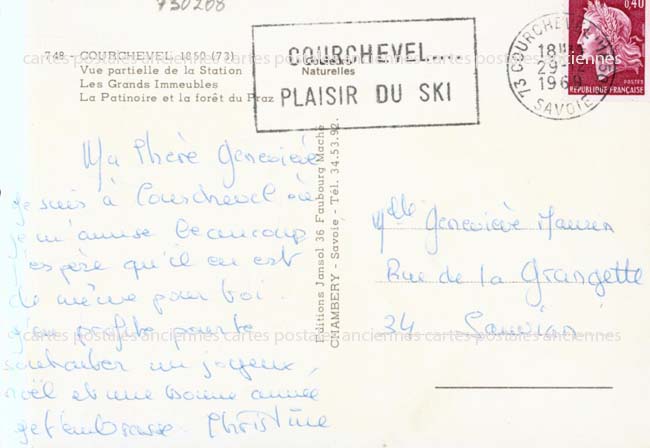 730208
748 - COURCHEVEL 1850 (73)
Vue partielle de la Station
Les Grands Immeubles
La Patinoire et la forêt du Praz
Naturelles
COURCHEVEL....
PLAISIR DU SKI
73 COURCHEVEL
18H
29-12
1969
SAVOIE
0,40
POSTES
REPUBLIQUE FRANÇAISE
cartes postales anciennes cartes postales anciennes cartes postales anciennes
Ma Chère Geneviève
Je suis à Courchevel où
je m'amuse beaucoup
j'espère qu'il en est
de même pour toi.
j'en profite pour te
souhaiter un joyeux
noël et une bonne année
je t'embrasse. Christine
Editions Jansol 36 Faubourg Maché
CHAMBERY - Savoie - Tél. 34.53.92.
Mlle Geneviève
Rue de La Grangette
34 Sauvian
cartes postales anciennes cartes postales anciennes cartes postales anciennes